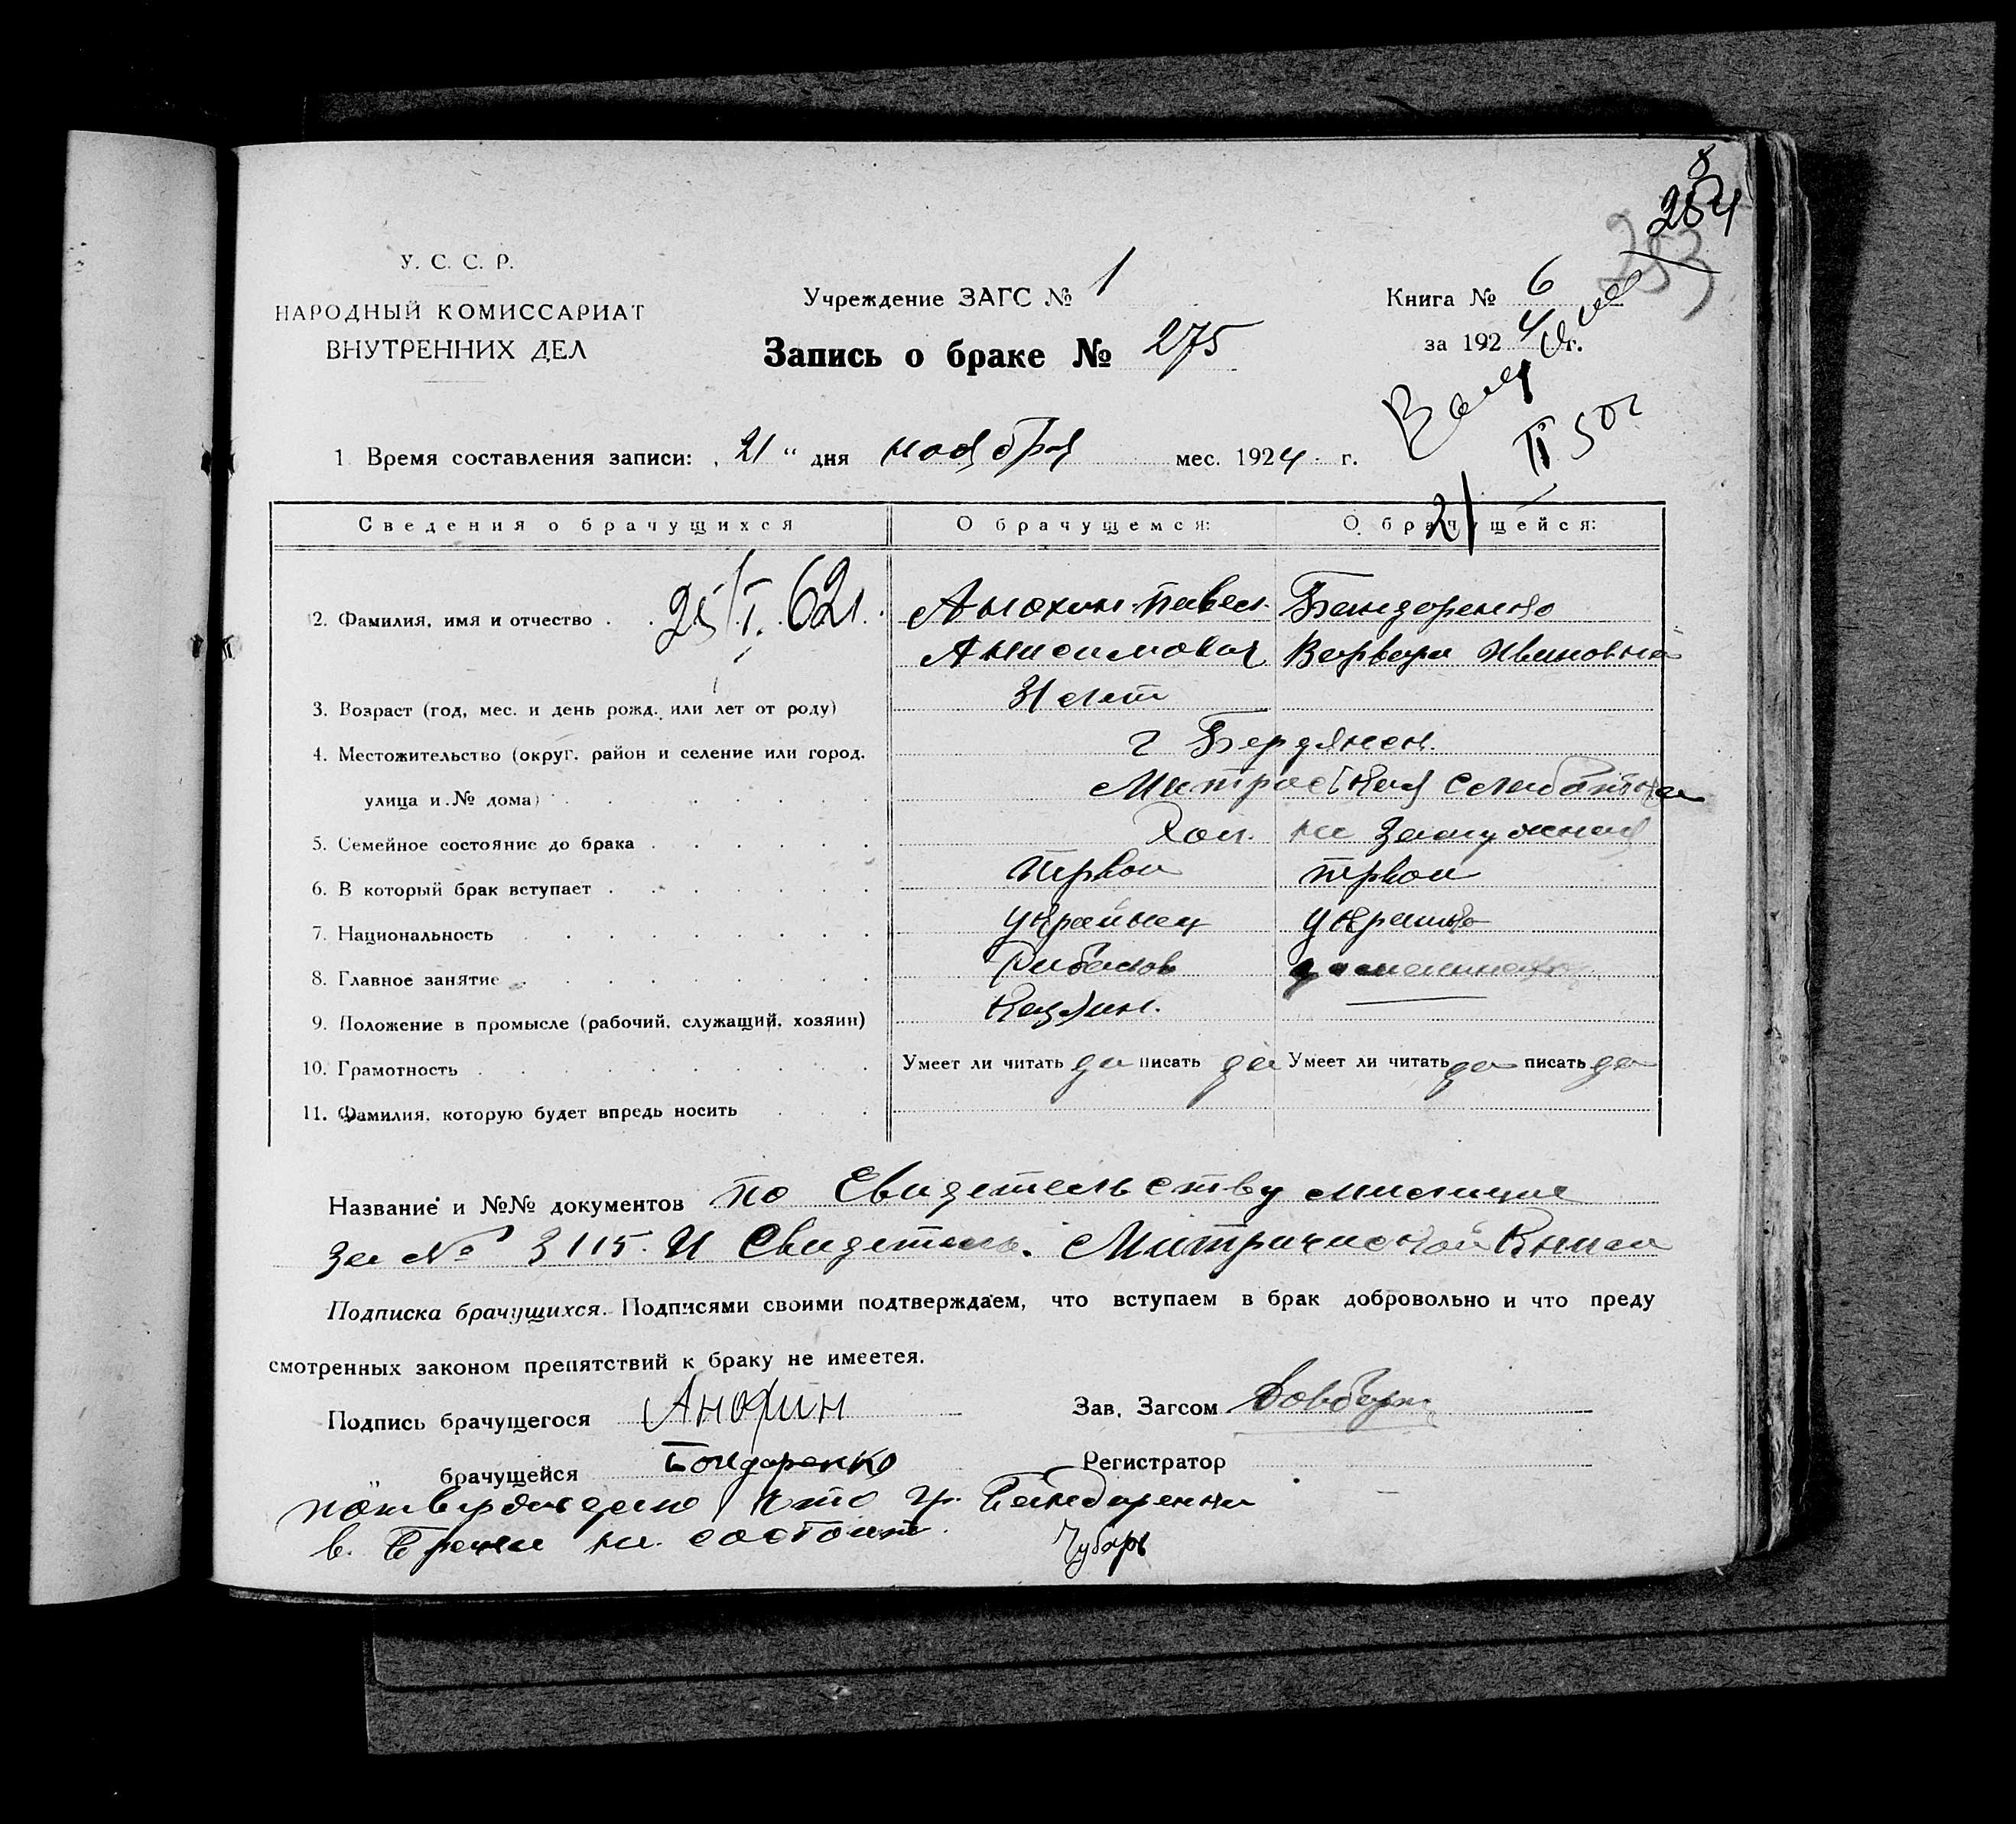 8
284
253
У. С. С. Р.
НАРОДНЫЙ КОМИССАРИАТ
ВНУТРЕННИХ ДЕЛ
Учреждение ЗАГС № 1
Запись о браке № 275
Книга № 6
за 1924 г.
II 50г
21
1 Время составления записи: „21“ дня ноября мес. 1924 г.
Сведения о брачущихся О брачущемся: О брачущейся:
25/I. 62г.
2. Фамилия, имя и отчество Анохин Павел Бандоренко
Анисимович Варвара Ивановна
3. Возраст (год, мес. и день рожд. или лет от роду) 31 лет
4. Местожительство (округ. район и селение или город. г Бердянск.
улица и № дома)
5. Семейное состояние до брака Хол. не замужная
6. В который брак вступает первой первой
7. Национальность украинец украинка
8. Главное занятие
9. Положение в промысле (рабочий, служащий, хозяин)
10. Грамотность Умеет ли читать да писать да Умеет ли читать да писать да
11. Фамилия, которую будет впредь носить
Название и №№ документов по Свидетельству милиции
за № 3115. И Свидетель. Митрической Книги
Подписка брачущихся. Подписями своими подтверждаем, что вступаем в брак добровольно и что преду
смотренных законом препятствий к браку не имеетея.
Подпись брачущегося Анохин Зав. Загсом
„ брачущейся Бондаренко Регистратор
что гр. Бандаренко
в. Браке не состоит. Чубарь